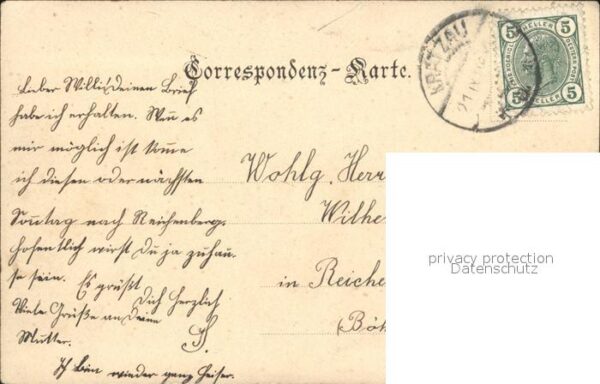 Correspondenz-Karte.
KRATZAU
5 HELLER 5
5 HELLER 5
Lieber Willi! Deinen Brief
habe ich erhalten. Wenn es
mir möglich ist komme
ich diesen oder nächsten
Sonntag nach Reichenberg.
hofentlich wirst Du ja zuhau-
se sein. Es grüßt
Dich herzlich
Viele Grüße an Deine
Mutter.
Ich bin wieder ganz heiser.
Wohlg. Herr
Wilhe
in Reiche
(Bö
privacy protection
Datenschutz